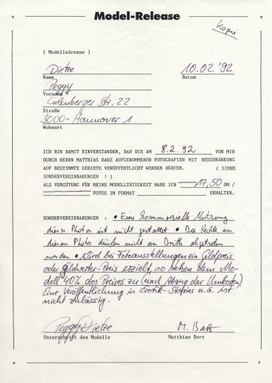 Model-Release
Kopie
( Modelladresse )
Dietze 10.02.'92
Name Datum
Peggy
Vorname
Calenberger Str. 22
Straße
3000-Hannover 1
Wohnort
ICH BIN DAMIT EINVERSTANDEN, DAS DIE AM 8.2.92 VON MIR
DURCH HERRN MATTHIAS BARZ AUFGENOMMENEN FOTOGRAFIEN MIT BESCHRÄNKUNG
AUF BESTIMMTE GEBIETE VERÖFFENTLICHT WERDEN DÜRFEN. ( SIEHE
SONDERVEREINBARUNGEN ! )
ALS VERGÜTUNG FÜR MEINE MODELLTÄTIGKEIT HABE ICH 17,50 DM /
FOTOS IM FORMAT ERHALTEN.
SONDERVEREINBARUNGEN: • Eine kommerzielle Nutzung
dieser Photos ist nicht gestattet • Die Rechte an
diesen Photos dürfen nicht an Dritte abgetreten
werden • Wird bei Fotoausstellungen ein Geldpreis
oder geldwerter Preis erzielt, so stehen dem Mo-
dell 40% des Preises zu (nach Abzug der Unkosten)
Eine Veröffentlichung in Erotik- u.ä. ist
nicht zulässig.
Peggy Dietze M. Barz
Unterschrift des Modells Matthias Barz